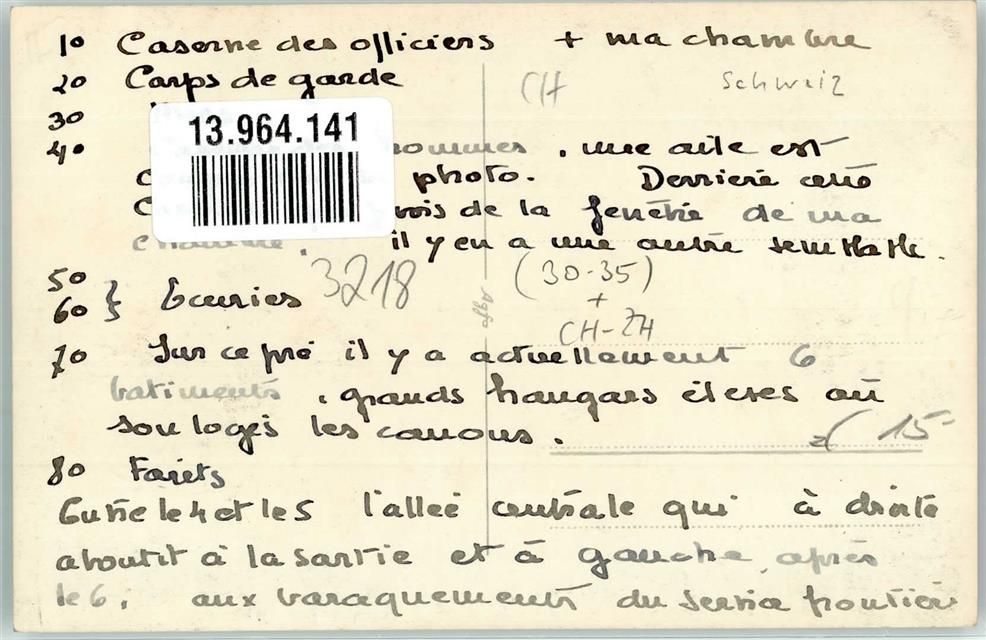 1° Caserne des officiers + ma chambre
2° Corps de garde
CH Schweiz
3°
13.964.141
4° hommes. une aile est
photo. Derrière cette
vois de la fenêtre de ma
chambre. il y en a une autre semblable.
5°
6° } Ecuries
3218 (30-35)
+
CH-ZH
Agfa
7° Sur ce pré il y a actuellement 6
batiments, grands hangars élevés où
son logés les canons.
15
8° Forêts
Entre le 4 et le 5 l'allée centrale qui à droite
aboutit à la sortie et à gauche, après
le 6, aux baraquements du service frontière